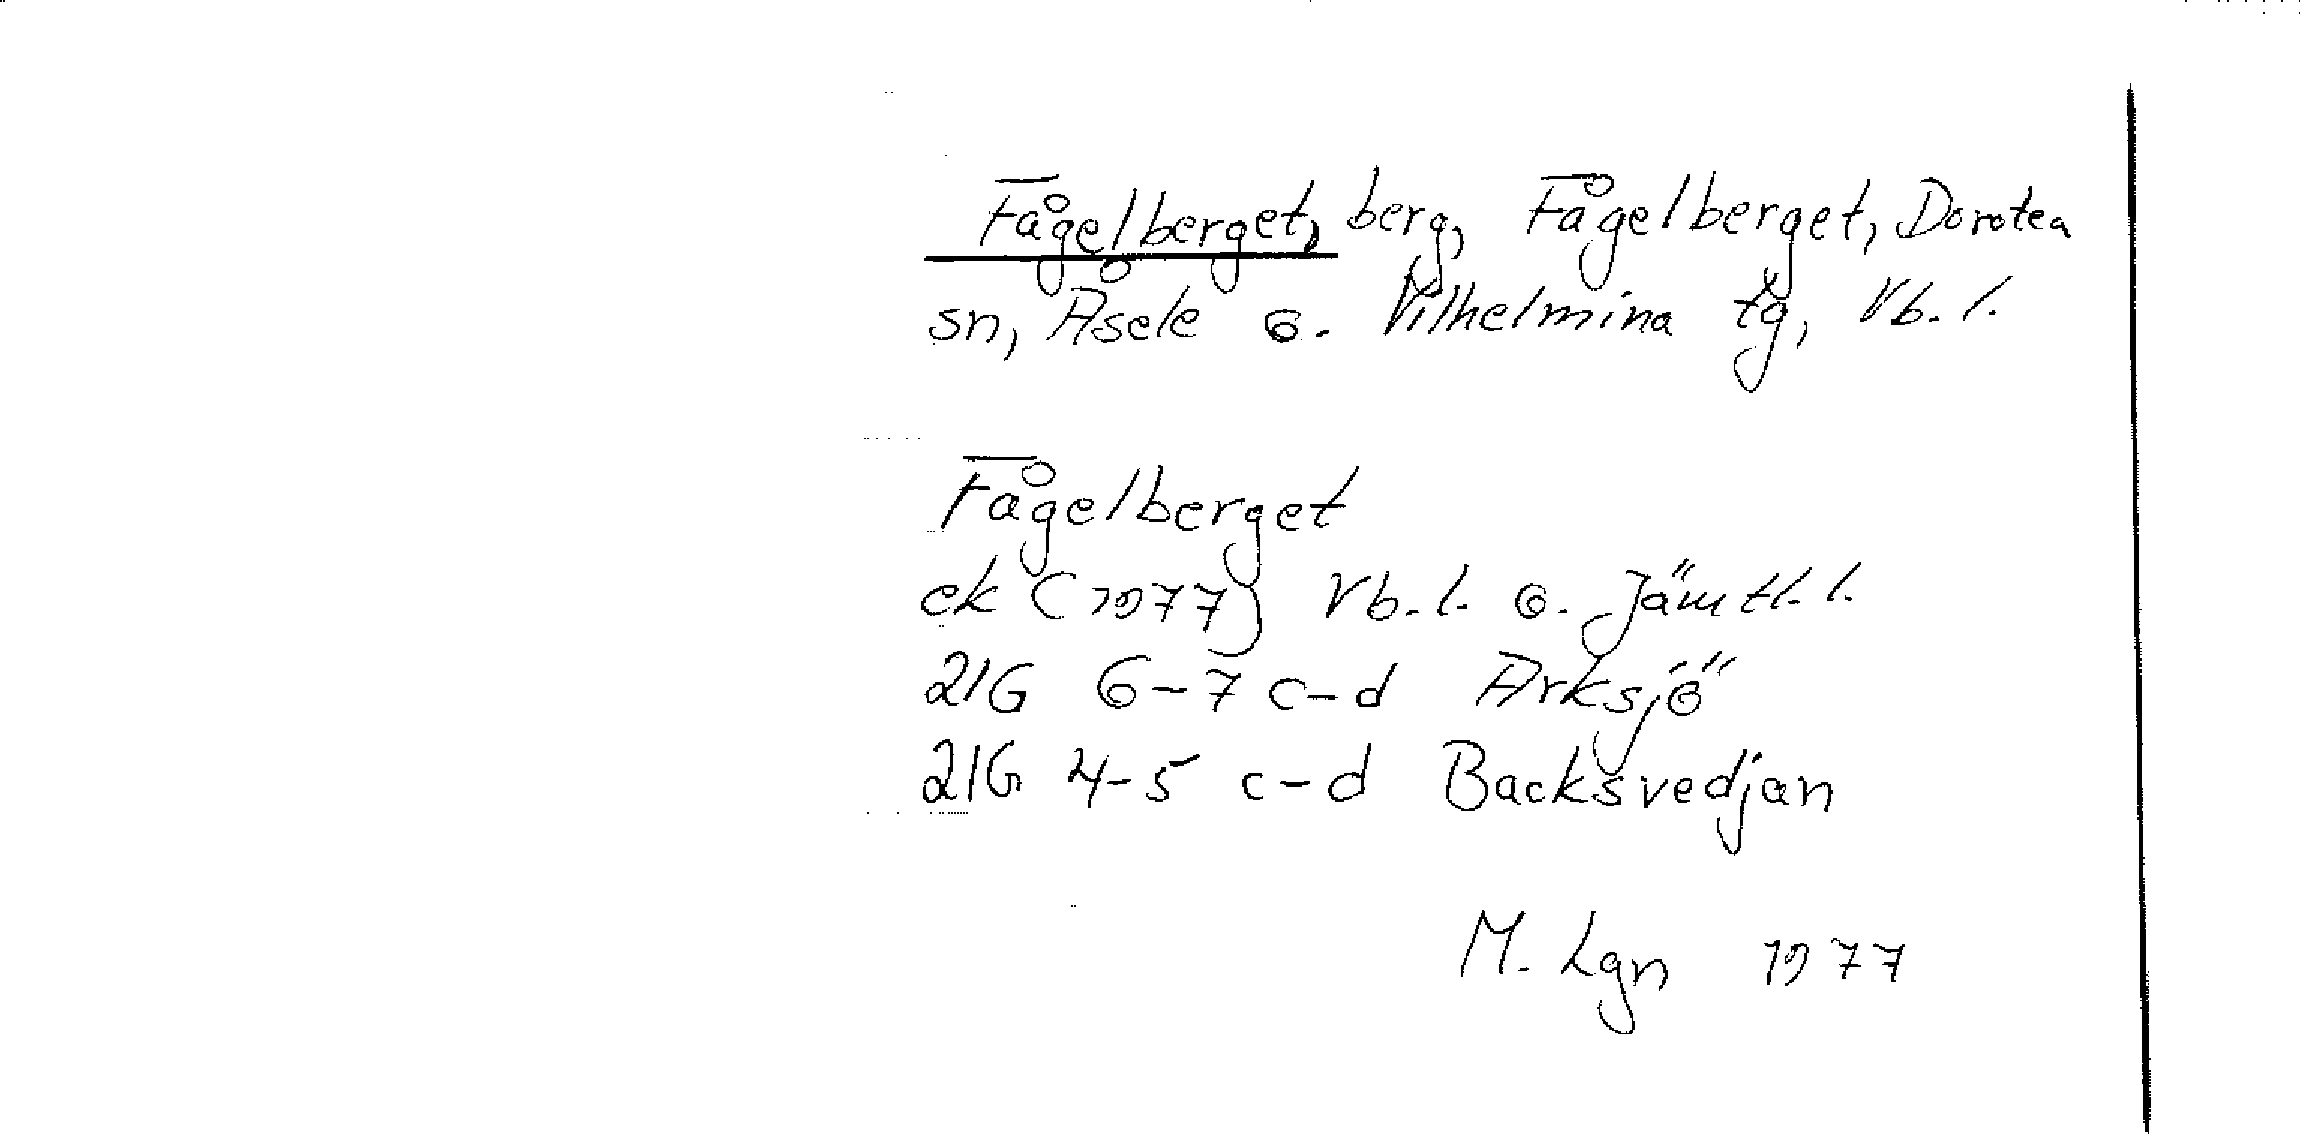 Fågelberget, berg, Fågelberget, Dorotea
sn, Åsele o. Vilhelmina tg, Vb. l.
Fågelberget
ek (1977) Vb. l. o. Jämtl. l.
21G 6-7 c-d Arksjö
21G 4-5 c-d Backsvedjan
M. Lgn 1977